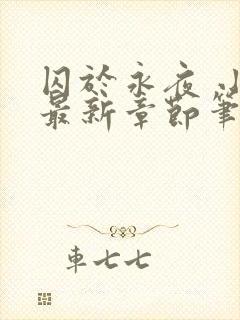 囚於永夜 小
最新章節筆
車七七